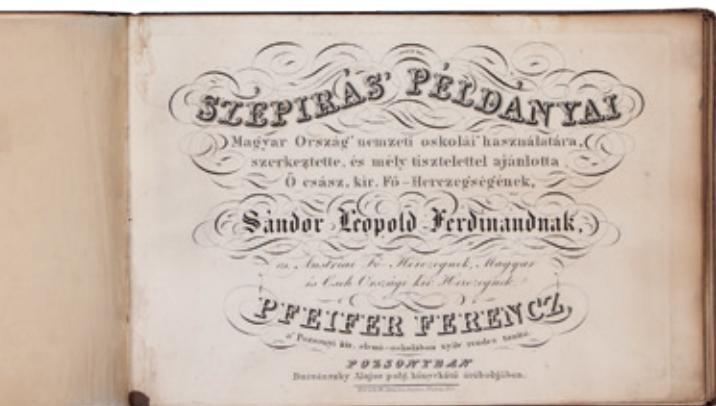 SZÉPIRÁS' PÉLDÁNYAI
Magyar Ország' nemzeti oskolái' használatára,
szerkeztette, és mély tisztelettel ajánlotta
Ő csász. kir. Fő-Herczegségének,
Sándor Leopold Ferdinandnak,
cs. Austriai Fő-Herczegnek, Magyar
és Cseh Országi kir. Herczegnek
PFEIFER FERENCZ,
a' Pozsonyi kir. elemi-oskolában nyilv. rendes tanító.
POZSONYBAN
Bucsánszky Alajos polg. könyvkötő örökabjában.